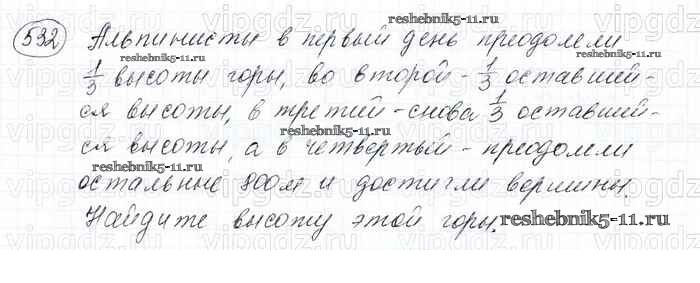 532 Альпинисты в первый день преодолели
1/3 высоты горы, во второй - 1/3 оставшей-
ся высоты, в третий - снова 1/3 оставшей-
ся высоты, а в четвертый - преодолели
остальные 800м и достигли вершины.
Найдите высоту этой горы.
reshebnik5-11.ru
reshebnik5-11.ru
reshebnik5-11.ru
reshebnik5-11.ru
reshebnik5-11.ru
vipgdz